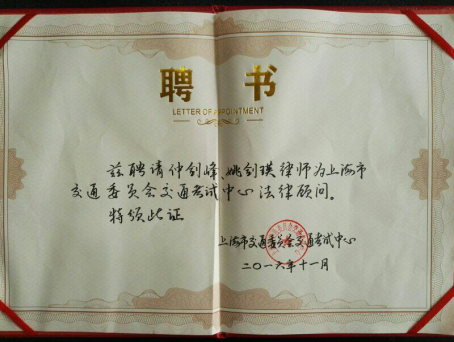 聘 书
LETTER OF APPOINTMENT
兹聘请仲剑峰、姚剑瑛律师为上海市
交通委员会交通考试中心法律顾问。
特颁此证
上海市交通委员会交通考试中心
二〇一六年十一月